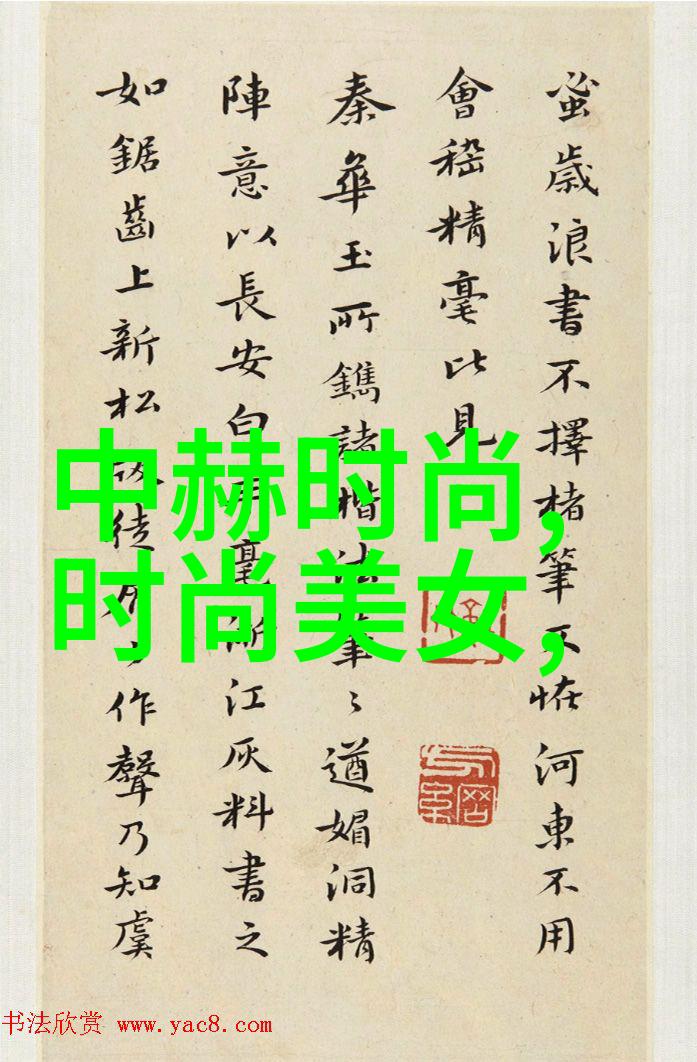 蚤歲浪書不擇楮筆不恠河東不用
會嵇精毫比見
秦華玉所鐫諸楷法筆〻遒媚洞精
陣意以長安白毫浙江灰料書之
如鋸齒上新松徒作聲乃知虞
中赫时尚,
时尚美女,
书法欣赏 www.yac8.com